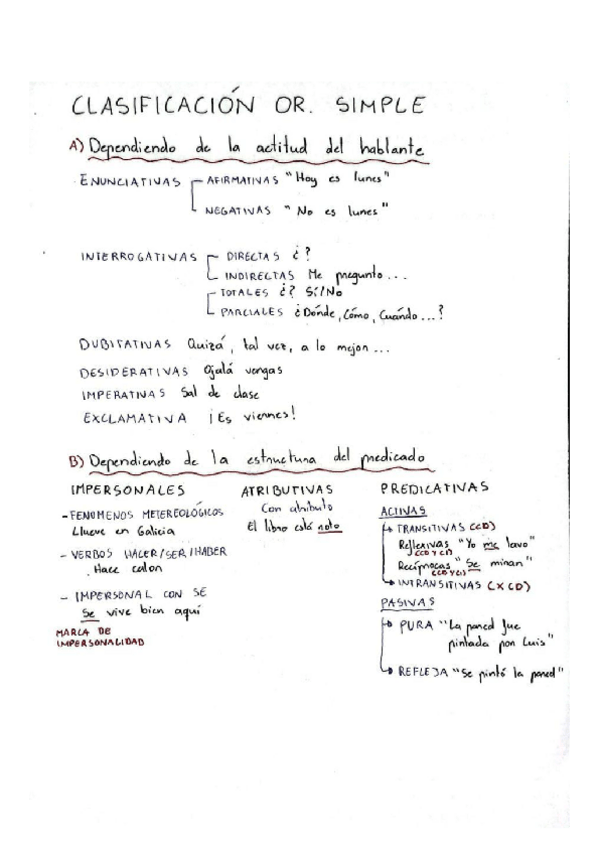 CLASIFICACIÓN OR. SIMPLE
A) Dependiendo de la actitud del hablante
ENUNCIATIVAS AFIRMATIVAS "Hoy es lunes"
NEGATIVAS "No es lunes"
INTERROGATIVAS DIRECTAS ¿?
INDIRECTAS Me pregunto...
TOTALES ¿? Sí/No
PARCIALES ¿Dónde, Cómo, Cuándo...?
DUBITATIVAS Quizá, tal vez, a lo mejor...
DESIDERATIVAS Ojalá vengas
IMPERATIVAS Sal de clase
EXCLAMATIVA ¡Es viernes!
B) Dependiendo de la estructura del predicado
IMPERSONALES
-FENOMENOS METEREOLÓGICOS
Llueve en Galicia
- VERBOS HACER/SER/HABER
Hace calor
- IMPERSONAL CON SE
Se vive bien aquí
MARCA DE
IMPERSONALIDAD
ATRIBUTIVAS
Con atributo
El libro está roto
PREDICATIVAS
ACTIVAS
TRANSITIVAS (CD)
Reflexivas "Yo me lavo"
(CD Y CI)
Recíprocas "Se miran"
(CD Y CI)
INTRANSITIVAS (X CD)
PASIVAS
PURA "La pared fue
pintada por Luis"
REFLEJA "Se pintó la pared"